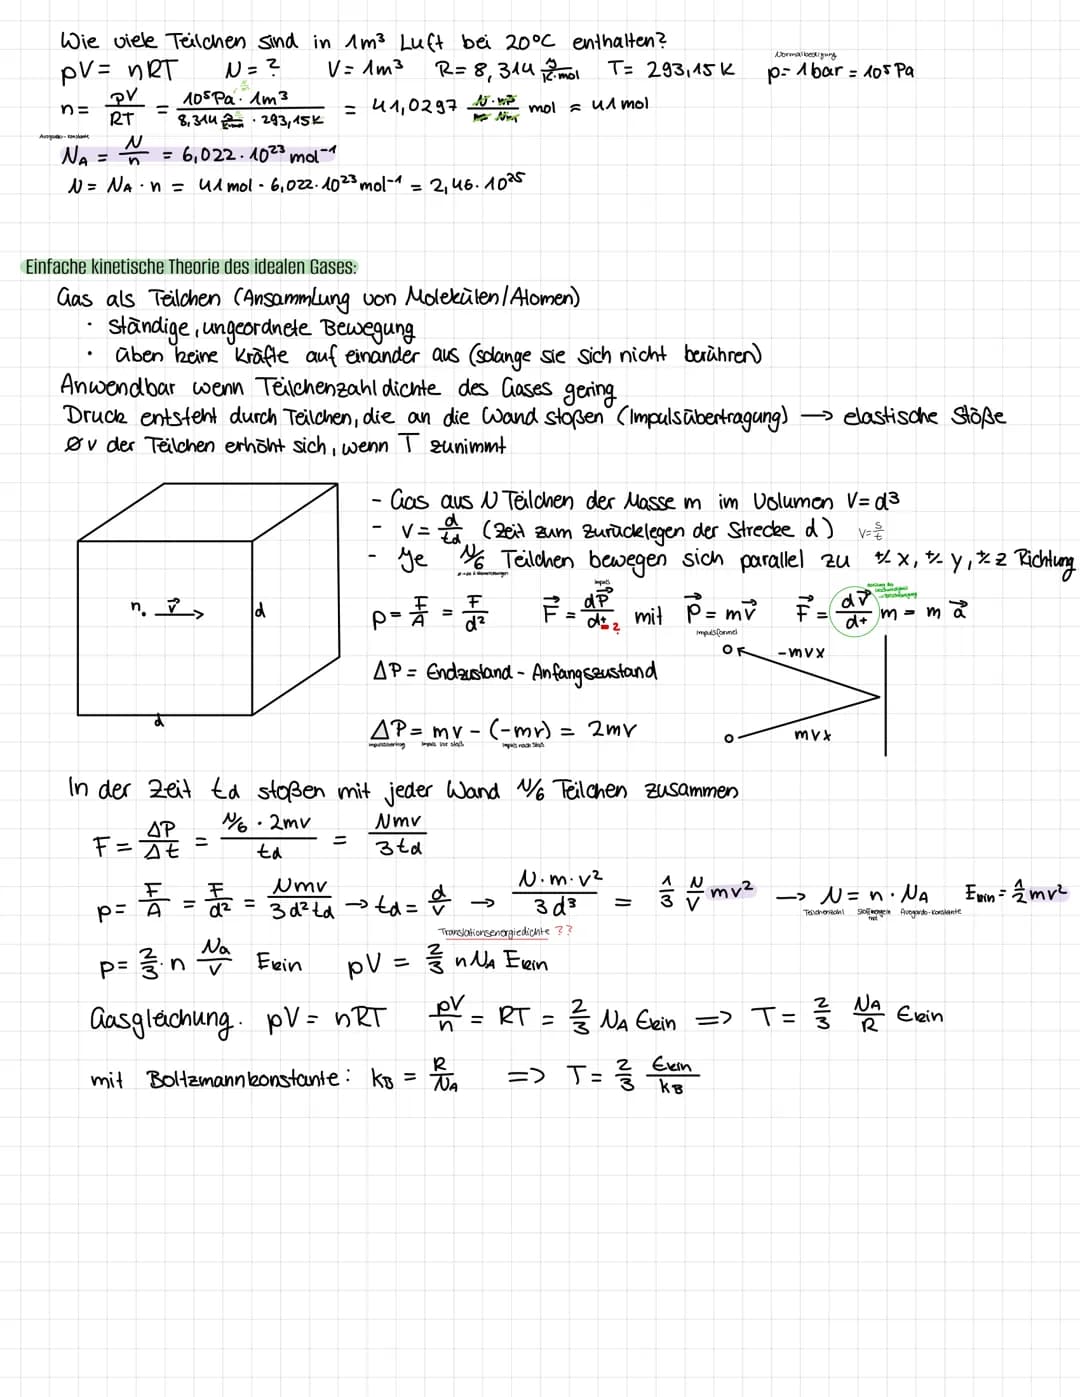 Wie viele Teilchen sind in 1m³ Luft bei 20°C enthalten?
Normalbedingung
pV = nRT N = ? V = 1m³ R = 8,314 J/K·mol T = 293,15 K p = 1 bar = 10⁵ Pa
n = pV/RT = 10⁵Pa · 1m³ / 8,314 J/K·mol · 293,15K = 41,0297 N·m³/m² Nm mol ≈ 41 mol
Avogadro-konstante
N_A = N/n = 6,022 · 10²³ mol⁻¹
N = N_A · n = 41 mol · 6,022 · 10²³ mol⁻¹ = 2,46 · 10²⁵
Einfache kinetische Theorie des idealen Gases:
Gas als Teilchen (Ansammlung von Molekülen/Atomen)
· ständige, ungeordnete Bewegung
· üben keine Kräfte auf einander aus (solange sie sich nicht berühren)
Anwendbar wenn Teilchenzahldichte des Gases gering
Druck entsteht durch Teilchen, die an die Wand stoßen (Impulsübertragung) → elastische Stöße
Øv der Teilchen erhöht sich, wenn T zunimmt
- Gas aus N Teilchen der Masse m im Volumen V = d³
- v = d/td (Zeit zum Zurücklegen der Strecke d) v = s/t
- Je N/6 Teilchen bewegen sich parallel zu +/- x, +/- y, +/- z Richtung
n. v→ d
d
Impuls
p = F/A = F/d² F→ = dP→/dt ? mit P→ = mv→ F→ = dv→/dt m = m a→
Impulsformel
ΔP = Endzustand - Anfangszustand
-mvx
mvx
ΔP = mv - (-mv) = 2mv
Impulsübertrag Impuls vor Stoß Impuls nach Stoß
In der Zeit td stoßen mit jeder Wand N/6 Teilchen zusammen
F = ΔP/Δt = N/6 · 2mv / td = Nmv/3td
p = F/A = F/d² = Nmv/3d²td → td = d/v → N·m·v²/3d³ = 1/3 N/V mv² → N = n · N_A Ekin = 1/2 mv²
Translationsenergiedichte ?? Teilchenzahl Stoffmenge in mol Avogardo-Konstante
p = 2/3 · n Na/V Ekin pV = 2/3 n N_A Ekin
Gasgleichung. pV = nRT pV/n = RT = 2/3 N_A Ekin => T = 2/3 N_A/R Ekin
mit Boltzmannkonstante: k_B = R/N_A => T = 2/3 Ekin/k_B